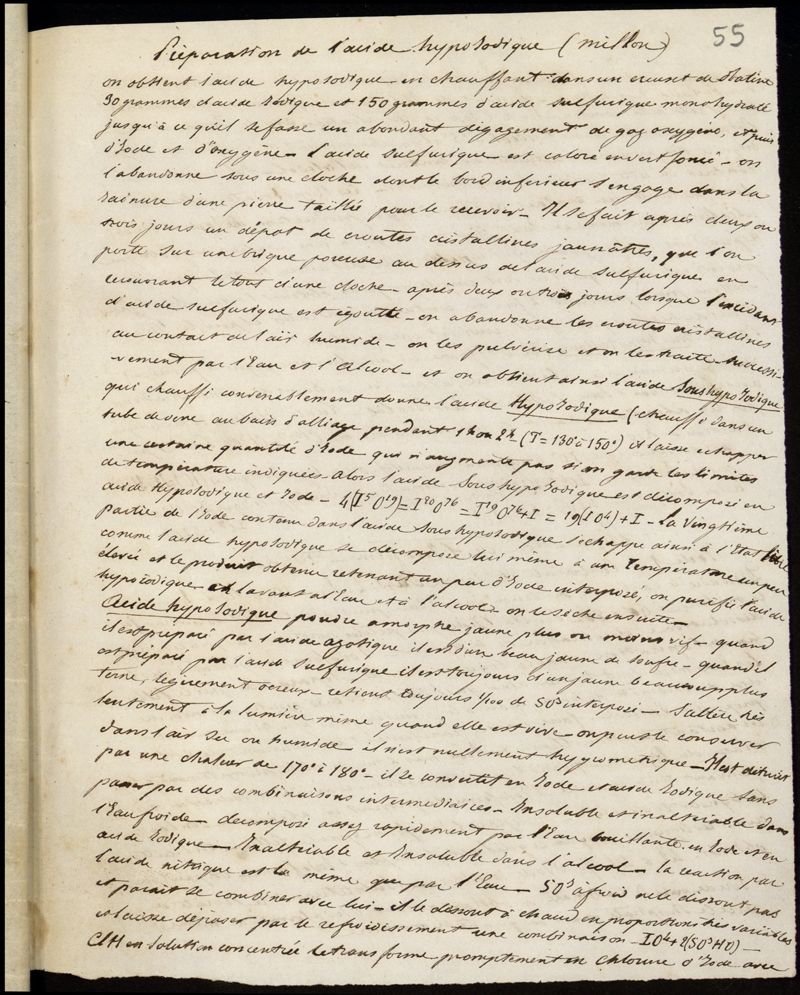 55
Préparation de l'acide hypoiodique (Millon)
on obtient l'acide hypoiodique en chauffant dans un creuset de platine
30 grammes d'acide iodique et 150 grammes d'acide sulfurique monohydraté
jusqu'à ce qu'il se fasse un abondant dégagement de gaz oxygène, et puis
d'Iode et d'oxygène – l'acide sulfurique est coloré en vert foncé – on
l'abandonne sous une cloche dont le bord inférieur s'engage dans la
rainure d'une pierre taillée pour le recevoir – Il se fait après deux ou
trois jours un dépot de croutes cristallines jaunâtres, que l'on
porte sur une brique poreuse au dessus de l'acide sulfurique en
recouvrant le tout d'une cloche – après deux ou trois jours lorsque l'excédant
d'acide sulfurique est égoutté – on abandonne les croutes cristallines
au contact de l'air humide – on les pulvérise et on les traite successi-
-vement par l'Eau et l'alcool – et on obtient ainsi l'acide Soushypoiodique
qui chauffé convenablement donne l'acide Hypoiodique (chauffé dans un
tube de verre au bain d'alliage pendant 1h ou 2h (T = 130° à 150°) il laisse échapper
une certaine quantité d'Iode qui n'augmente pas si on garde les limites
de température indiquées – Alors l'acide Soushypoiodique est décomposé en
acide Hypoiodique et Iode – 4(I⁵O¹⁹) = I²⁰O⁷⁶ = I¹⁹O⁷⁶ + I = 19(IO⁴) + I – la vingtième
partie de l'Iode contenu dans l'acide Soushypoiodique s'échappe ainsi à l'Etat libre
comme l'acide hypoiodique se décompose lui même à une température un peu
élevée et le produit obtenu retenant un peu d'Iode interposé, on purifie l'acide
hypoiodique en lavant à l'Eau et à l'alcool – on le sèche ensuite –
Acide hypoiodique poudre amorphe jaune plus ou moins vif – quand
il est préparé par l'acide azotique il est d'un beau jaune de soufre – quand il
est préparé par l'acide sulfurique il est toujours d'un jaune beaucoup plus
terne, légèrement ocreux – retient toujours 1/100 de SO³ interposé – S'altère très
lentement à la lumière même quand elle est vive – on peut le conserver
dans l'air sec ou humide – il n'est nullement hygrometrique – Il est détruit
par une chaleur de 170° à 180° – il se convertit en Iode et acide Iodique sans
passer par des combinaisons intermédiaires – Insoluble et inaltérable dans
l'Eau froide – décomposé assez rapidement par l'Eau bouillante en Iode et en
acide Iodique – Inaltérable et Insoluble dans l'alcool – la réaction par
l'acide nitrique est la même que par l'Eau – SO³ à froid ne le dissout pas
et parait se combiner avec lui – il le dissout à chaud en proportions très variables
et laisse déposer par le refroidissement une combinaison – IO⁴ + 2(SO³HO) –
ClH en solution concentrée le transforme promptement en chlorure d'Iode avec